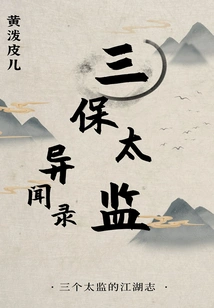 黄泼皮儿
三保太监
异闻录
三个太监的江湖志